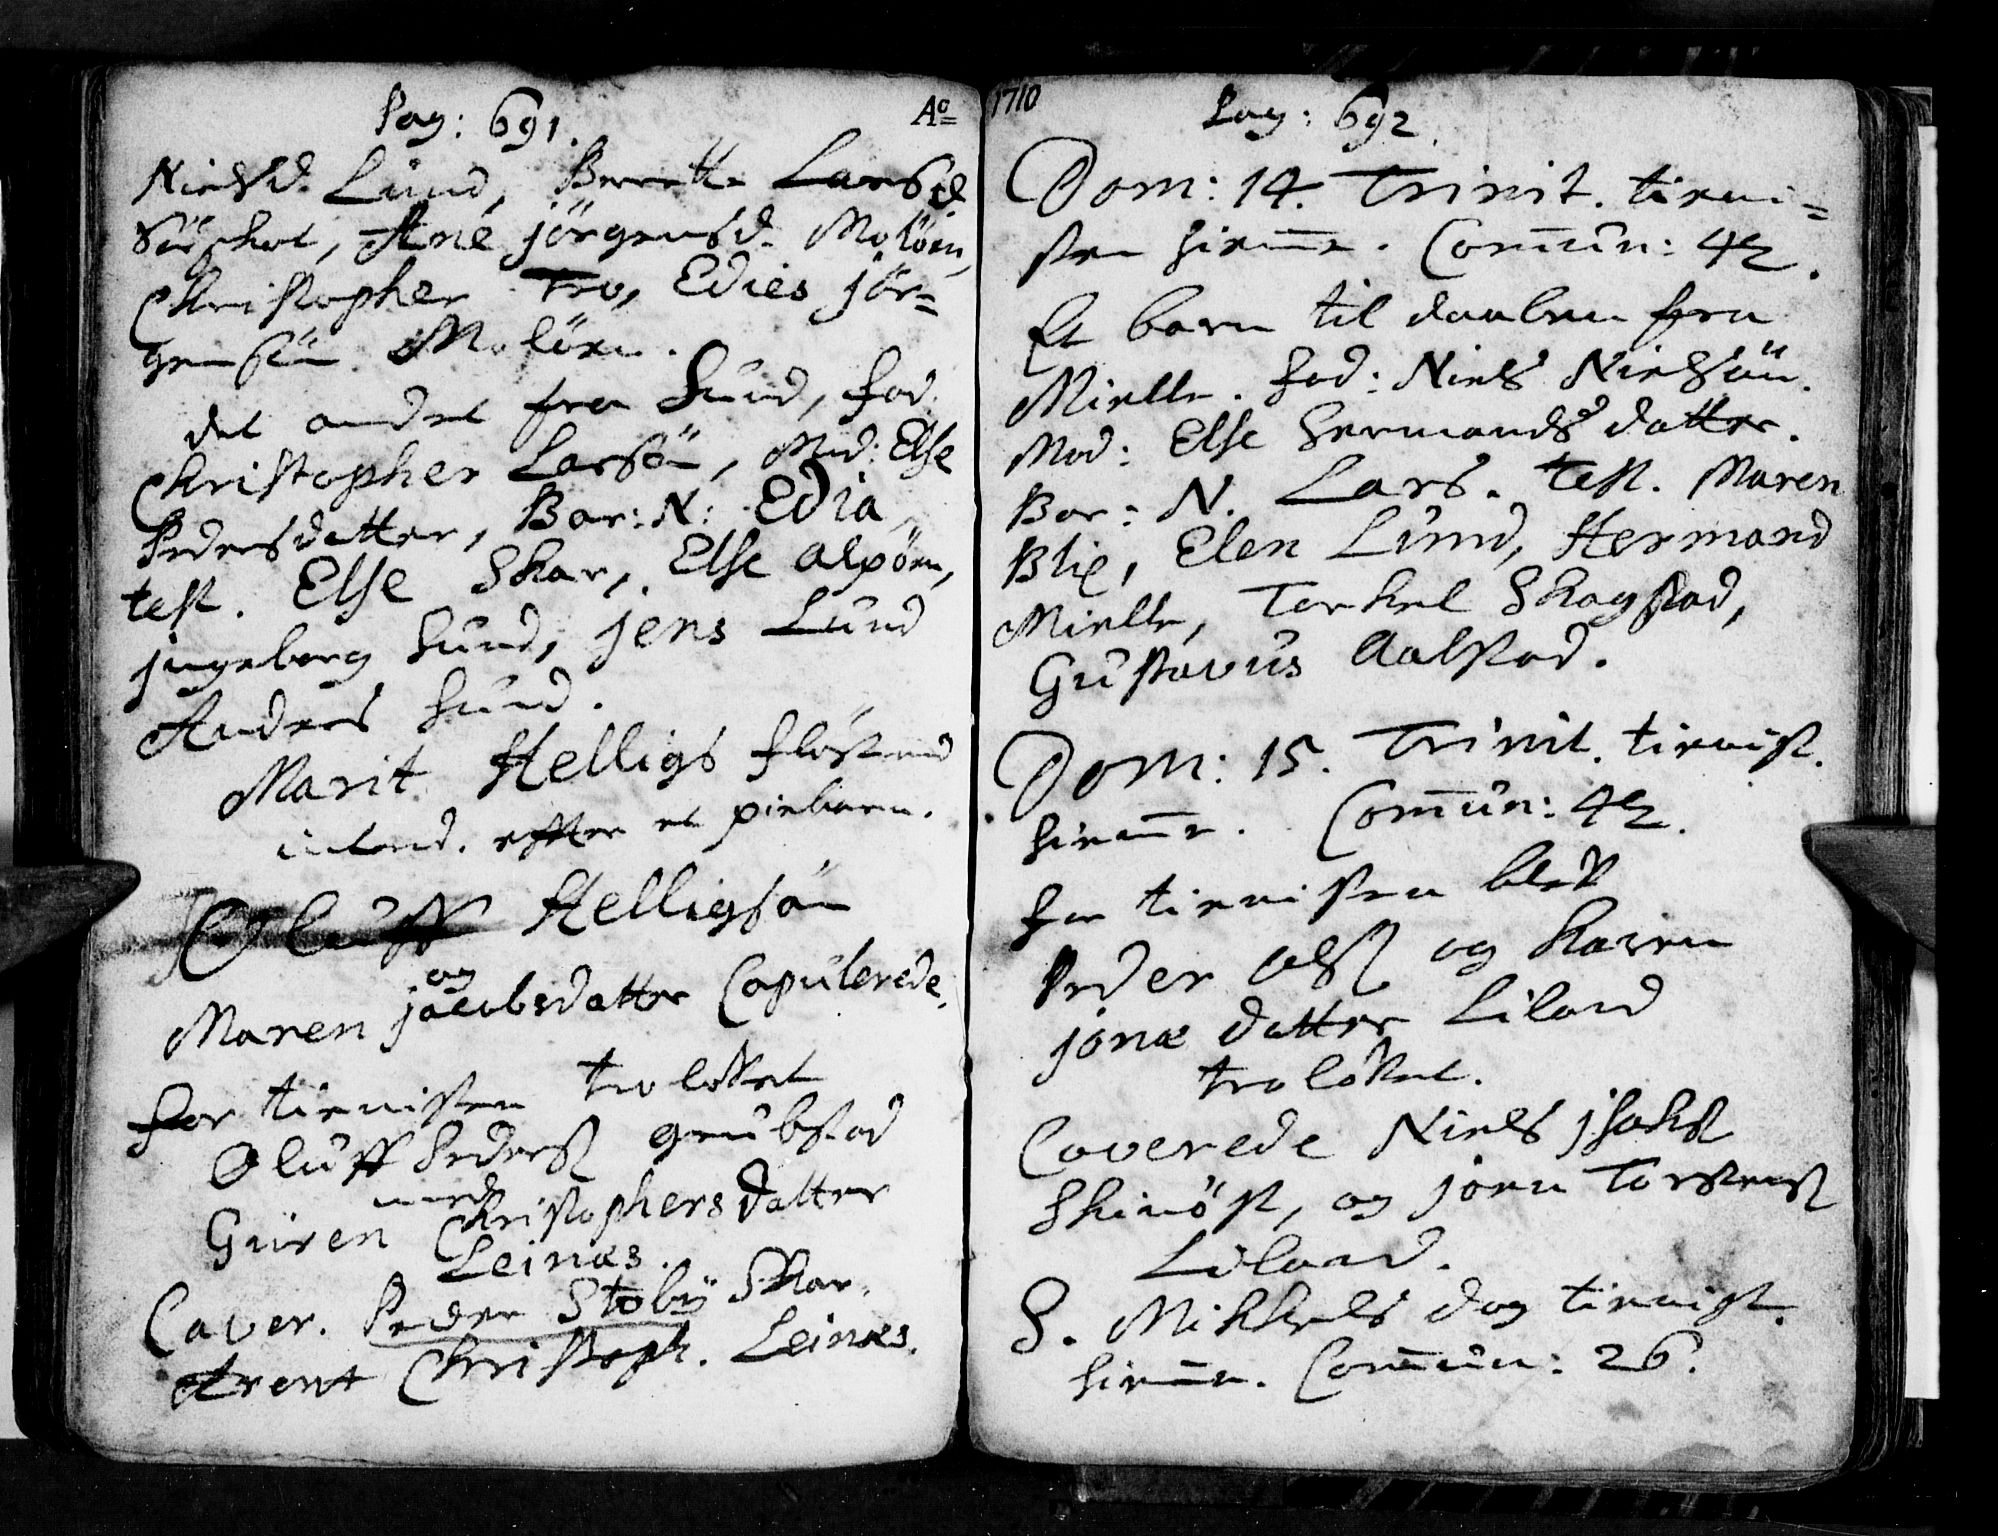 Pag: 691. Aº
Nielsd. Lund, Berette Larsd.
Ane jörgensd. Molöen,
Christopher Tro, Edies jör=
gensön Molöen.
det andet fra Sund, fad.
Christopher Larsön, Mod: Else
Pedersdatter, Bar: N: Edia,
test. Else Skar, Else alpöen,
jngeborg Sund, jens Lund
Anders Sund.
Marit Helligs fløstrand
introd. effter et piebarn.
Oluff Helligsön
og
Maren jacobsdatter Copulerede.
for tienisten troloffvet
Oluff Pederss grubstad
med
Guren Christophersdatter
Leinæs.
Caver. Peder Stobÿ Skar.
Arent Christoph. Leinæs.
1710 Pag: 692.
Dom: 14. Trinit. tieni=
sten hiem̄e. Com̄un: 42.
Et barn til daaben fra
Mielle. fad: Niels Nielsön.
Mod: Else Hermandsdatter.
Bar: N. Lars. test. Maren
Blix, Elen Lund, Hermand
Mielle, Torkel Skagstad,
Gustavus Aalstad.
Dom: 15. Trinit. tienist.
hiem̄e. Com̄un: 42.
for tienisten blef
Peder Olss og Karen
jonæ datter Liland
troloffvet.
Caverede Niels jsakss
Skinöst, og joen Torstenss
Liland.
S. Mikkels dag tienist.
hiem̄e. Com̄un: 26.